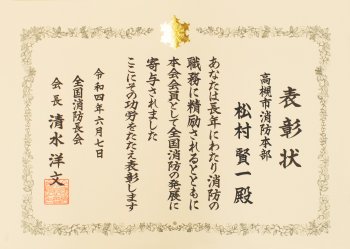 表彰状
高槻市消防本部
松村賢一殿
あなたは長年にわたり消防の
職務に精励されるとともに
本会会員として全国消防の発展に
寄与されました
ここにその功労をたたえ表彰します
令和四年六月七日
全国消防長会
会長 清水洋文